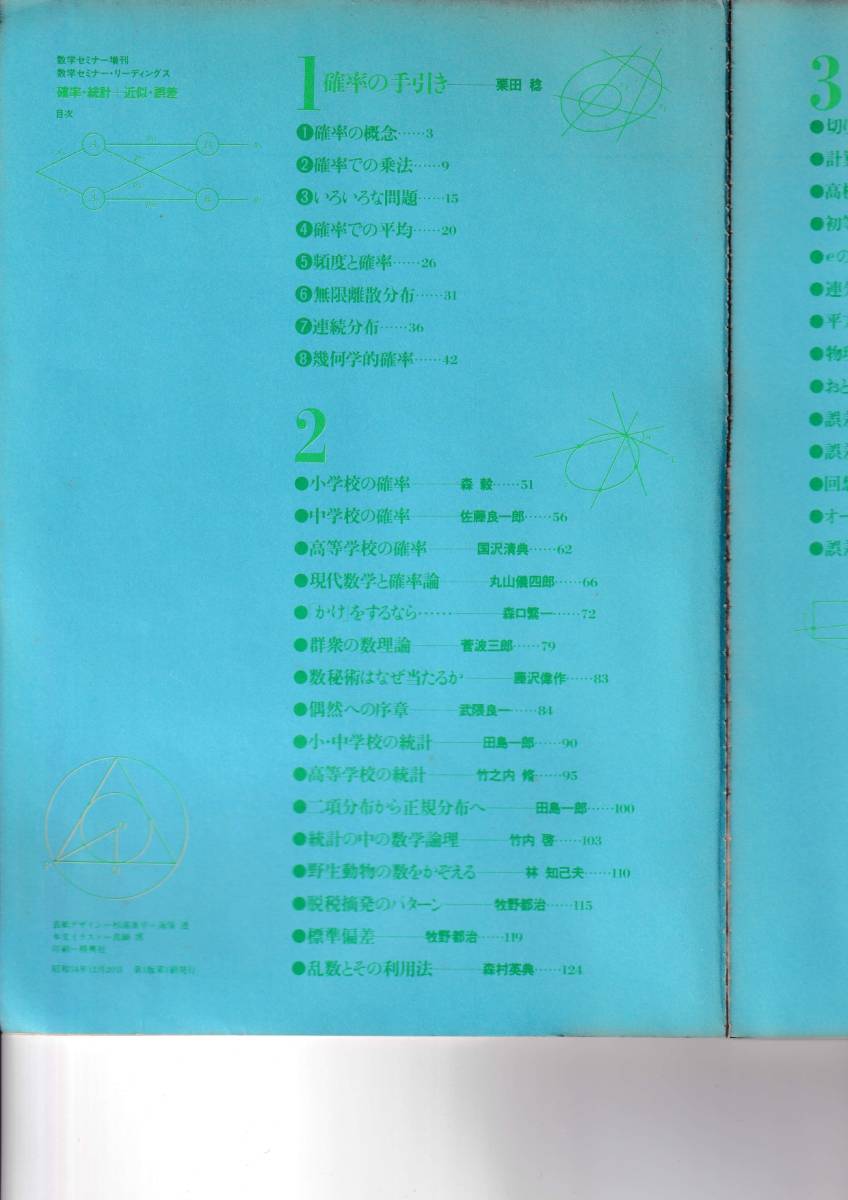 数学セミナー増刊
数学セミナー・リーディングス
確率・統計+近似・誤差
目次
1 確率の手引き——栗田 稔
❶確率の概念……3
❷確率での乗法……9
❸いろいろな問題……15
❹確率での平均……20
❺頻度と確率……26
❻無限離散分布……31
❼連続分布……36
❽幾何学的確率……42
2
●小学校の確率——森 毅……51
●中学校の確率——佐藤良一郎……56
●高等学校の確率——国沢清典……62
●現代数学と確率論——丸山儀四郎……66
●「かけ」をするなら……——森口繁一……72
●群衆の数理論——菅波三郎……79
●数秘術はなぜ当たるか——藤沢偉作……83
●偶然への序章——武隈良一……84
●小・中学校の統計——田島一郎……90
●高等学校の統計——竹之内 脩……95
●二項分布から正規分布へ——田島一郎……100
●統計の中の数学論理——竹内 啓……103
●野生動物の数をかぞえる——林 知己夫……110
●脱税摘発のパターン——牧野都治……115
●標準偏差——牧野都治……119
●乱数とその利用法——森村英典……124
昭和54年12月20日 第1版第1刷発行
3
●切
●計算
●高
●初等
●eの
●連
●平方
●物理
●おと
●誤差
●誤差
●回想
●オー
●誤差